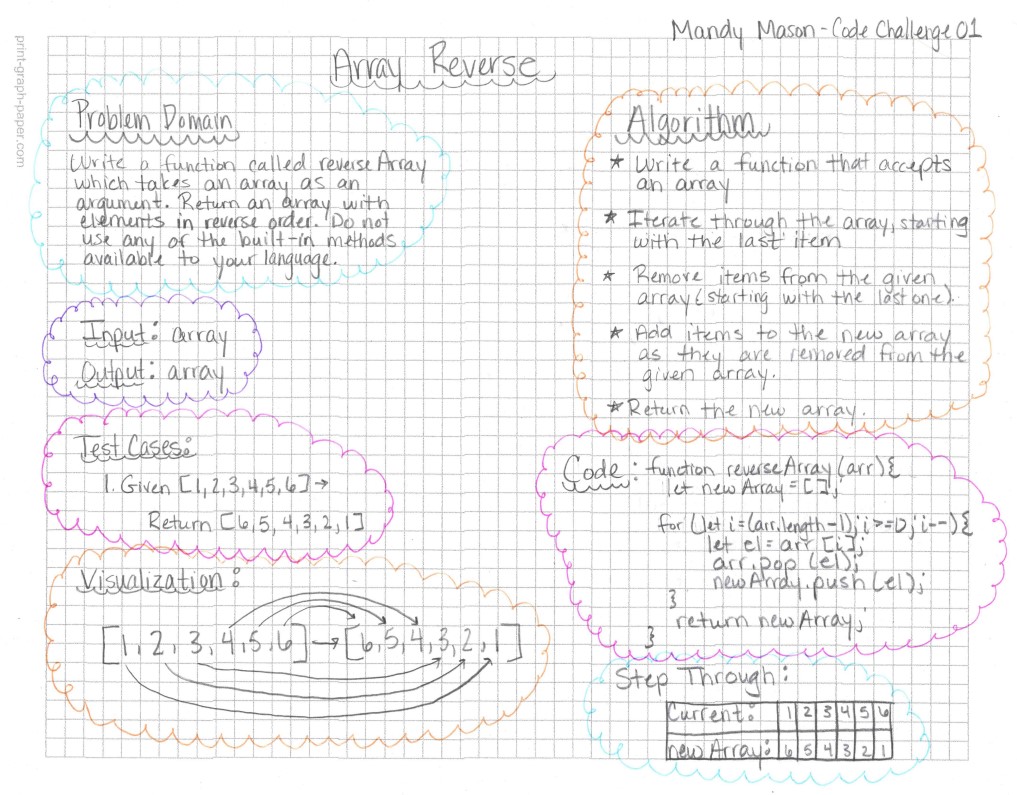 Mandy Mason - Code Challenge 01
print-graph-paper.com
Array Reverse
Problem Domain
Write a function called reverseArray
which takes an array as an
argument. Return an array with
elements in reverse order. Do not
use any of the built-in methods
available to your language.
Input: array
Output: array
Test Cases:
1. Given [1,2,3,4,5,6] →
Return [6,5,4,3,2,1]
Visualization:
[1,2,3,4,5,6] → [6,5,4,3,2,1]
Algorithm
* Write a function that accepts
an array
* Iterate through the array, starting
with the last item
* Remove items from the given
array (starting with the last one).
* Add items to the new array
as they are removed from the
given array.
* Return the new array.
Code: function reverseArray (arr) {
let newArray = [];
for (let i = (arr.length-1); i >= 0; i--) {
let el = arr [i];
arr.pop (el);
newArray.push (el);
}
return newArray;
}
Step Through:
Current: 1 2 3 4 5 6
newArray: 6 5 4 3 2 1